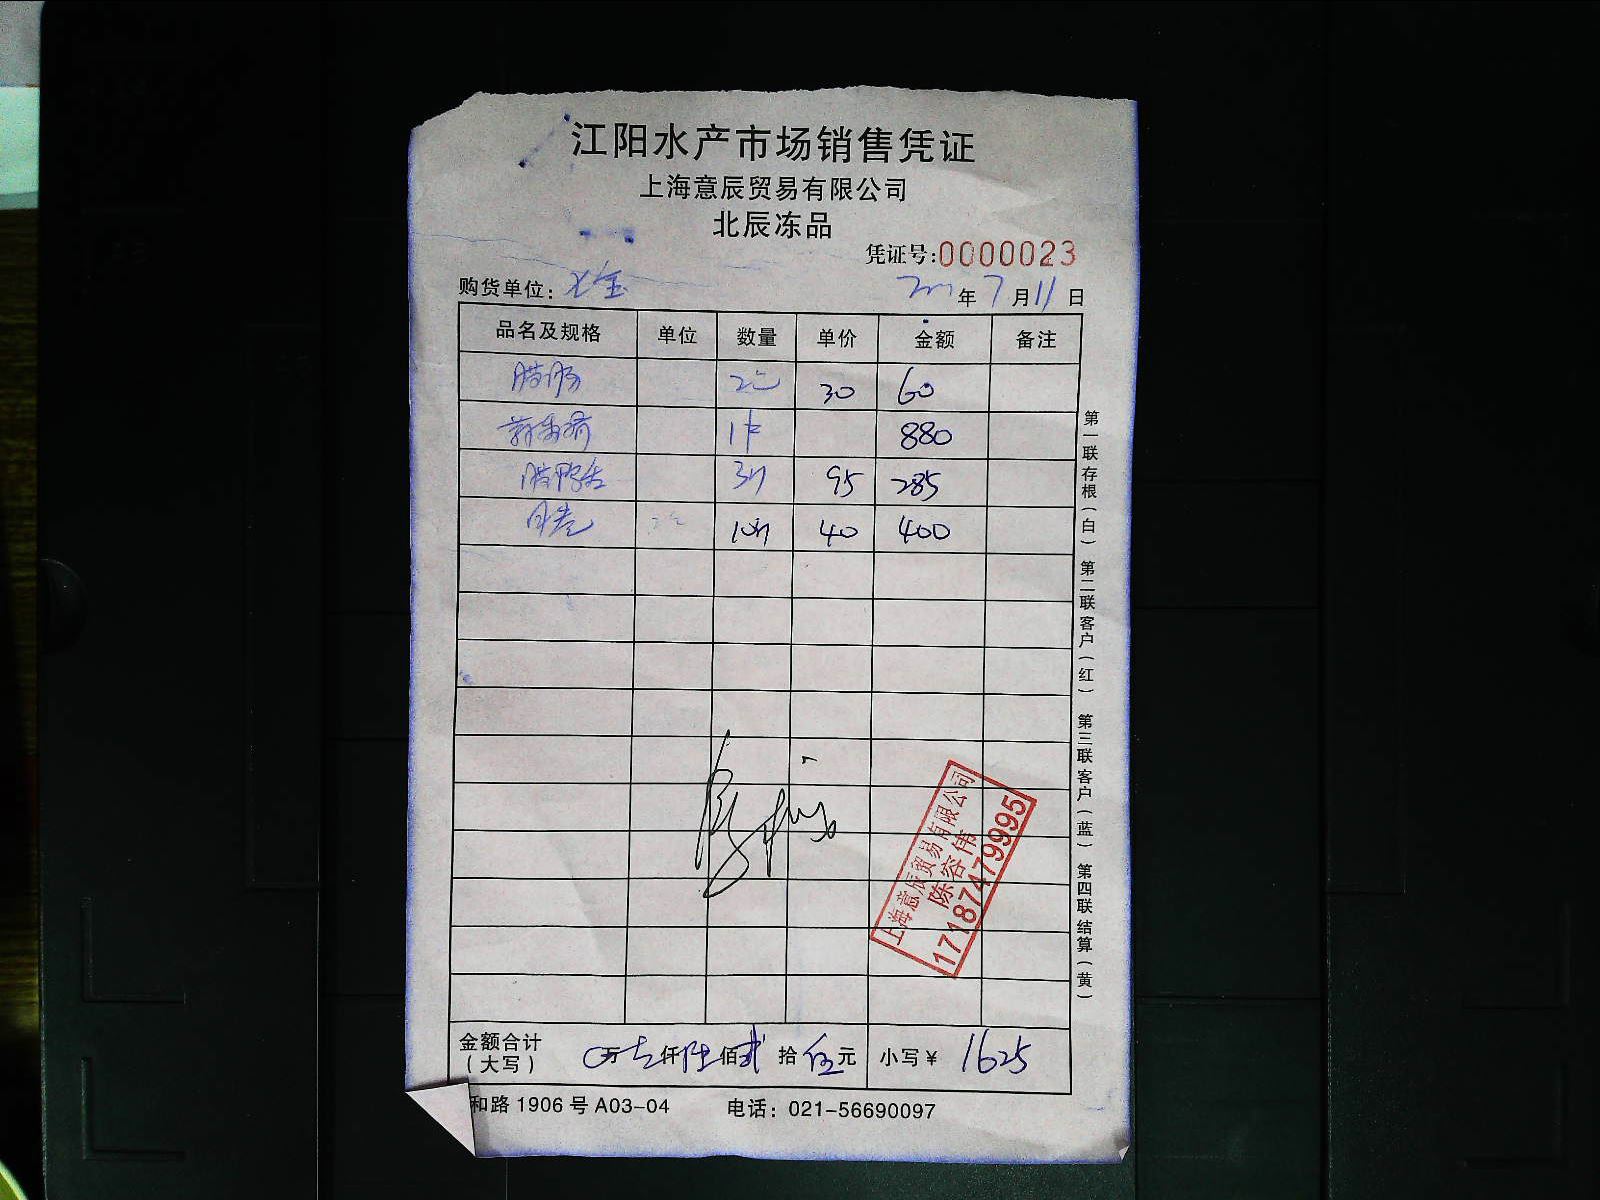 江阳水产市场销售凭证
上海意辰贸易有限公司
北辰冻品
凭证号:0000023
购货单位:
年 7 月 11 日
品名及规格 单位 数量 单价 金额 备注
腊肠 30 60
880
3 95 285
10 40 400
金额合计(大写) 0万壱仟陆佰贰拾伍元 小写¥ 1625
和路1906号A03-04 电话:021-56690097
第一联存根(白) 第二联客户(红) 第三联客户(蓝) 第四联结算(黄)
上海意辰贸易有限公司
陈容伟
17187479995